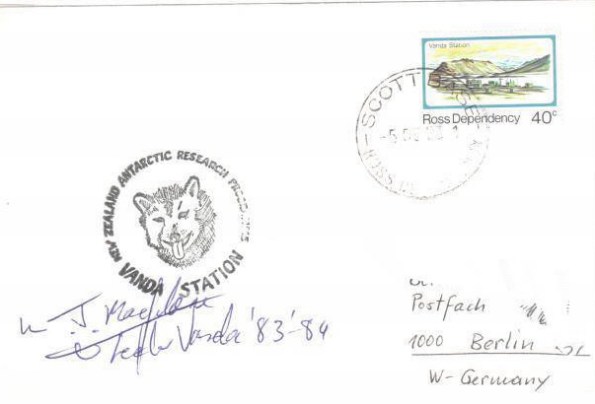 Vanda Station
Ross Dependency 40c
SCOTT BASE
NEW ZEALAND ANTARCTIC RESEARCH PROGRAMME
VANDA STATION
Vanda '83-'84
Postfach
1000 Berlin
W-Germany